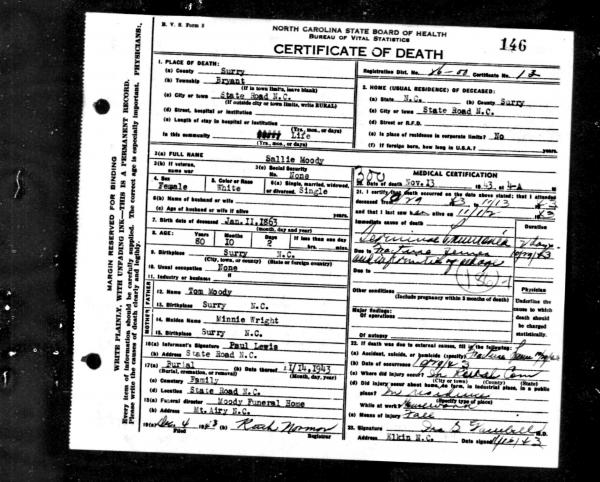 B. V. S. Form 8
NORTH CAROLINA STATE BOARD OF HEALTH
BUREAU OF VITAL STATISTICS
CERTIFICATE OF DEATH
146
MARGIN RESERVED FOR BINDING
WRITE PLAINLY, WITH UNFADING INK—THIS IS A PERMANENT RECORD.
Every item of information should be carefully supplied. The correct age is especially important. PHYSICIANS:
Please write the causes of death clearly and legibly.
1. PLACE OF DEATH:
(a) County Surry
(b) Township Bryant
(If in town limits, leave blank)
(c) City or town State Road N.C.
(If outside city or town limits, write RURAL)
(d) Street, hospital or institution
(e) Length of stay in hospital or institution
(Yrs., mos., or days)
In this community Life
(Yrs., mos., or days)
Registration Dist. No. 86-00 Certificate No. 12
2. HOME (USUAL RESIDENCE) OF DECEASED:
(a) State N.C. (b) County Surry
(c) City or town State Road N.C.
(d) Street or R.F.D.
(e) Is place of residence in corporate limits? No
(f) If foreign born, how long in U.S.A.? years
3(a) FULL NAME Sallie Moody
3(b) If veteran, name war
3(c) Social Security No. None
4. Sex Female
5. Color or Race White
6(a) Single, married, widowed, or divorced. Single
6(b) Name of husband or wife
6(c) Age of husband or wife if alive years
7. Birth date of deceased Jan.11,1863
(month, day and year)
8. AGE: Years 80 Months 10 Days 2 If less than one day hrs. min.
9. Birthplace Surry N.C.
(City, town, or county) (State or foreign country)
10. Usual occupation None
FATHER
12. Name Tom Moody
13. Birthplace Surry N.C.
MOTHER
14. Maiden Name Minnie Wright
15. Birthplace Surry N.C.
16(a) Informant's Signature Paul Lewis
(b) Address State Road N.C.
17(a) Burial (b) Date thereof 11/14,1943
(Burial, cremation, or removal) (Month, day, year)
(c) Cemetery Family
(d) Location State Road N.C.
18(a) Funeral director Moody Funeral Home
(b) Address Mt. Airy N.C.
19(a) Dec 4 1943 (b) Ruth Norman
Registrar
300
MEDICAL CERTIFICATION
20. Date of death Nov.13 1943. at 4-A
21. I certify that death occurred on the date above stated; that I attended
deceased from 43 11/13 43
and that I last saw alive on 11/12 43
Immediate cause of death Duration
Terminal Pneumonia
Due to Fracture Femur
and infirmities of old age
Due to
Other conditions
(Include pregnancy within 3 months of death)
Major findings:
Of operations
Of autopsy
Physician
Underline the cause to which death should be charged statistically.
22. If death was due to external causes, fill in the following:
(a) Accident, suicide, or homicide (specify) Fracture Femur
(b) Date of occurrence
(c) Where did injury occur?
(City or town) (County) (State)
(d) Did injury occur about home, on farm, in industrial place, in public place? In residence
(Specify type of place)
While at work?
(e) Means of injury Fall
23. Signature M.D.
Address Elkin N.C. Date signed